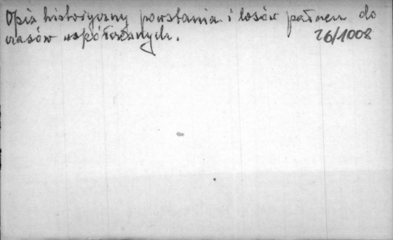 Opis historyczny powstania i losów pałacu do
czasów współczesnych.
26/1008